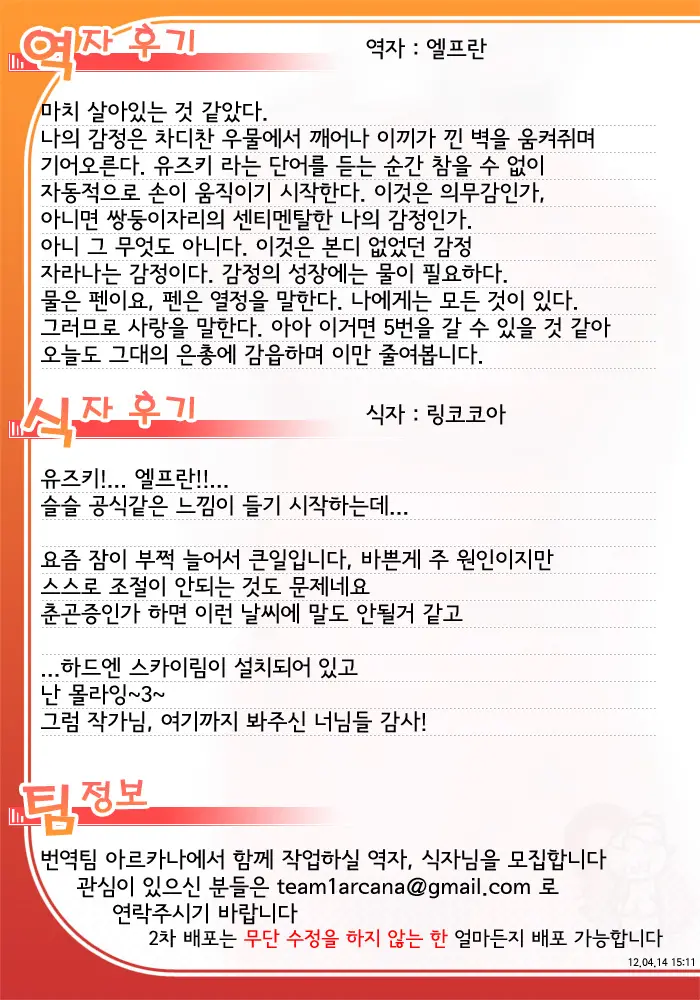 역자 후기
역자 : 엘프란
마치 살아있는 것 같았다.
나의 감정은 차디찬 우물에서 깨어나 이끼가 낀 벽을 움켜쥐며
기어오른다. 유즈키 라는 단어를 듣는 순간 참을 수 없이
자동적으로 손이 움직이기 시작한다. 이것은 의무감인가,
아니면 쌍둥이자리의 센티멘탈한 나의 감정인가.
아니 그 무엇도 아니다. 이것은 본디 없었던 감정
자라나는 감정이다. 감정의 성장에는 물이 필요하다.
물은 펜이요, 펜은 열정을 말한다. 나에게는 모든 것이 있다.
그러므로 사랑을 말한다. 아아 이거면 5번을 갈 수 있을 것 같아
오늘도 그대의 은총에 감읍하며 이만 줄여봅니다.
식자 후기
식자 : 링코코아
유즈키!... 엘프란!!...
슬슬 공식같은 느낌이 들기 시작하는데...
요즘 잠이 부쩍 늘어서 큰일입니다, 바쁜게 주 원인이지만
스스로 조절이 안되는 것도 문제네요
춘곤증인가 하면 이런 날씨에 말도 안될거 같고
...하드엔 스카이림이 설치되어 있고
난 몰라잉~3~
그럼 작가님, 여기까지 봐주신 너님들 감사!
팀 정보
번역팀 아르카나에서 함께 작업하실 역자, 식자님을 모집합니다
관심이 있으신 분들은 team1arcana@gmail.com 로
연락주시기 바랍니다
2차 배포는 무단 수정을 하지 않는 한 얼마든지 배포 가능합니다
12.04.14 15:11